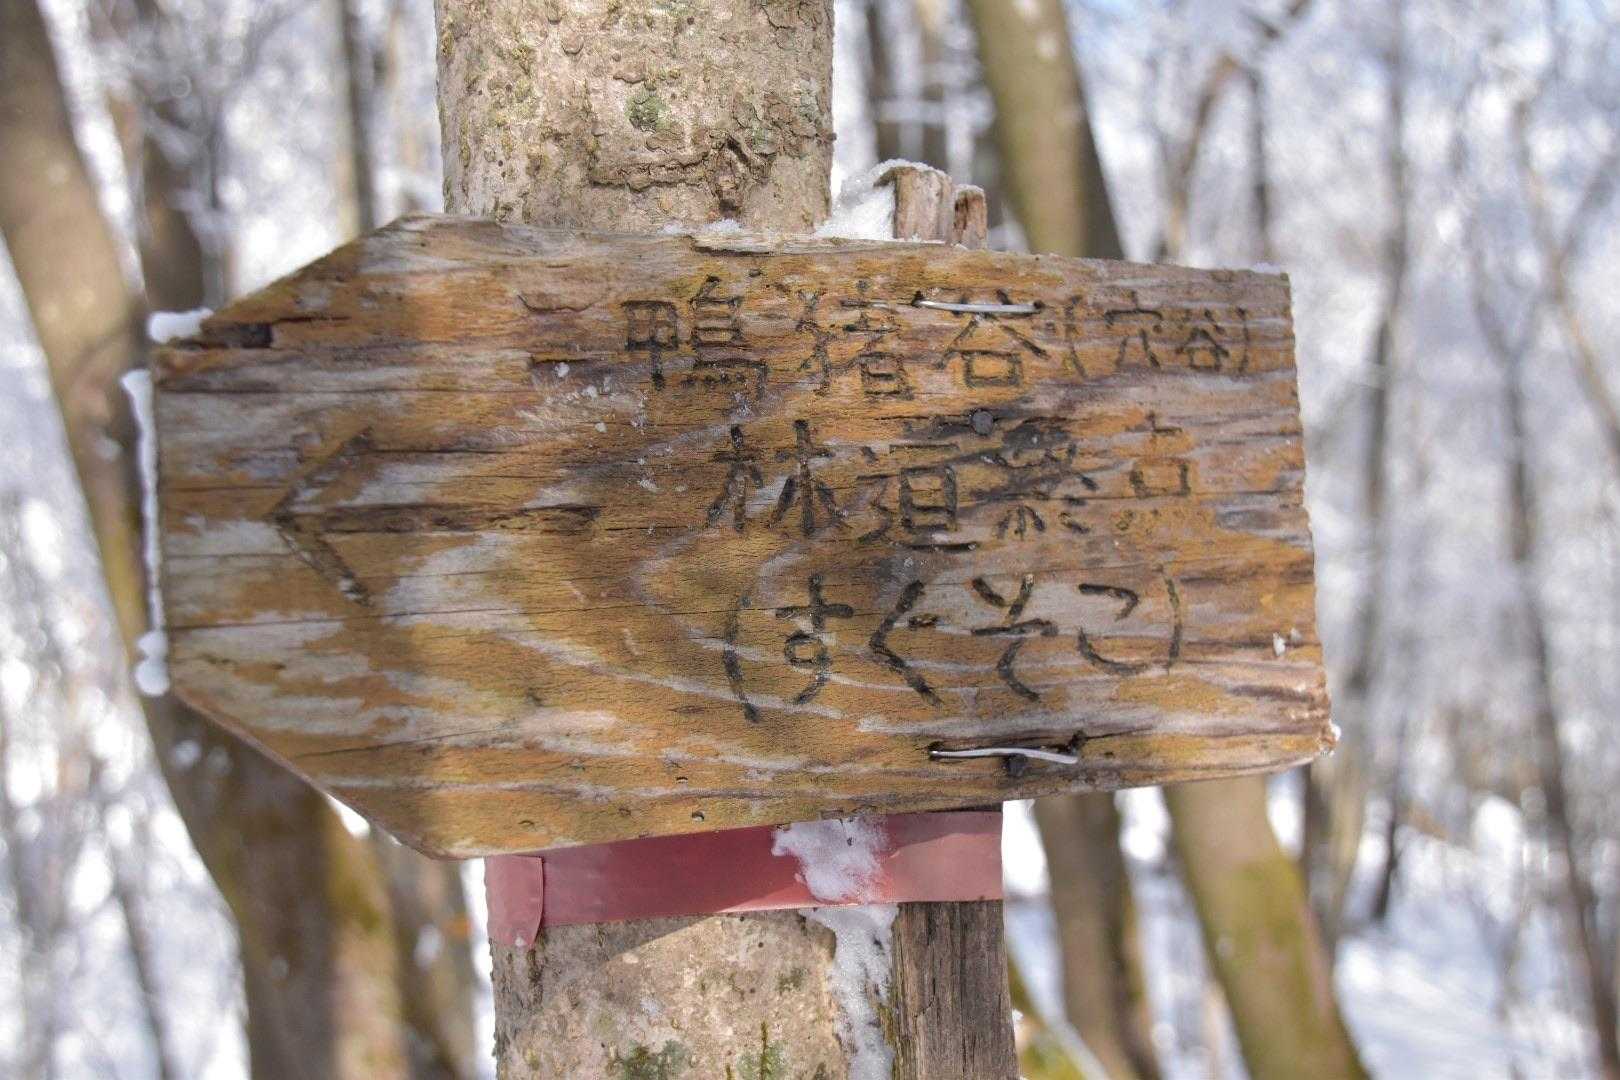 鴨猪谷(穴谷)
林道終点
(すぐそこ)